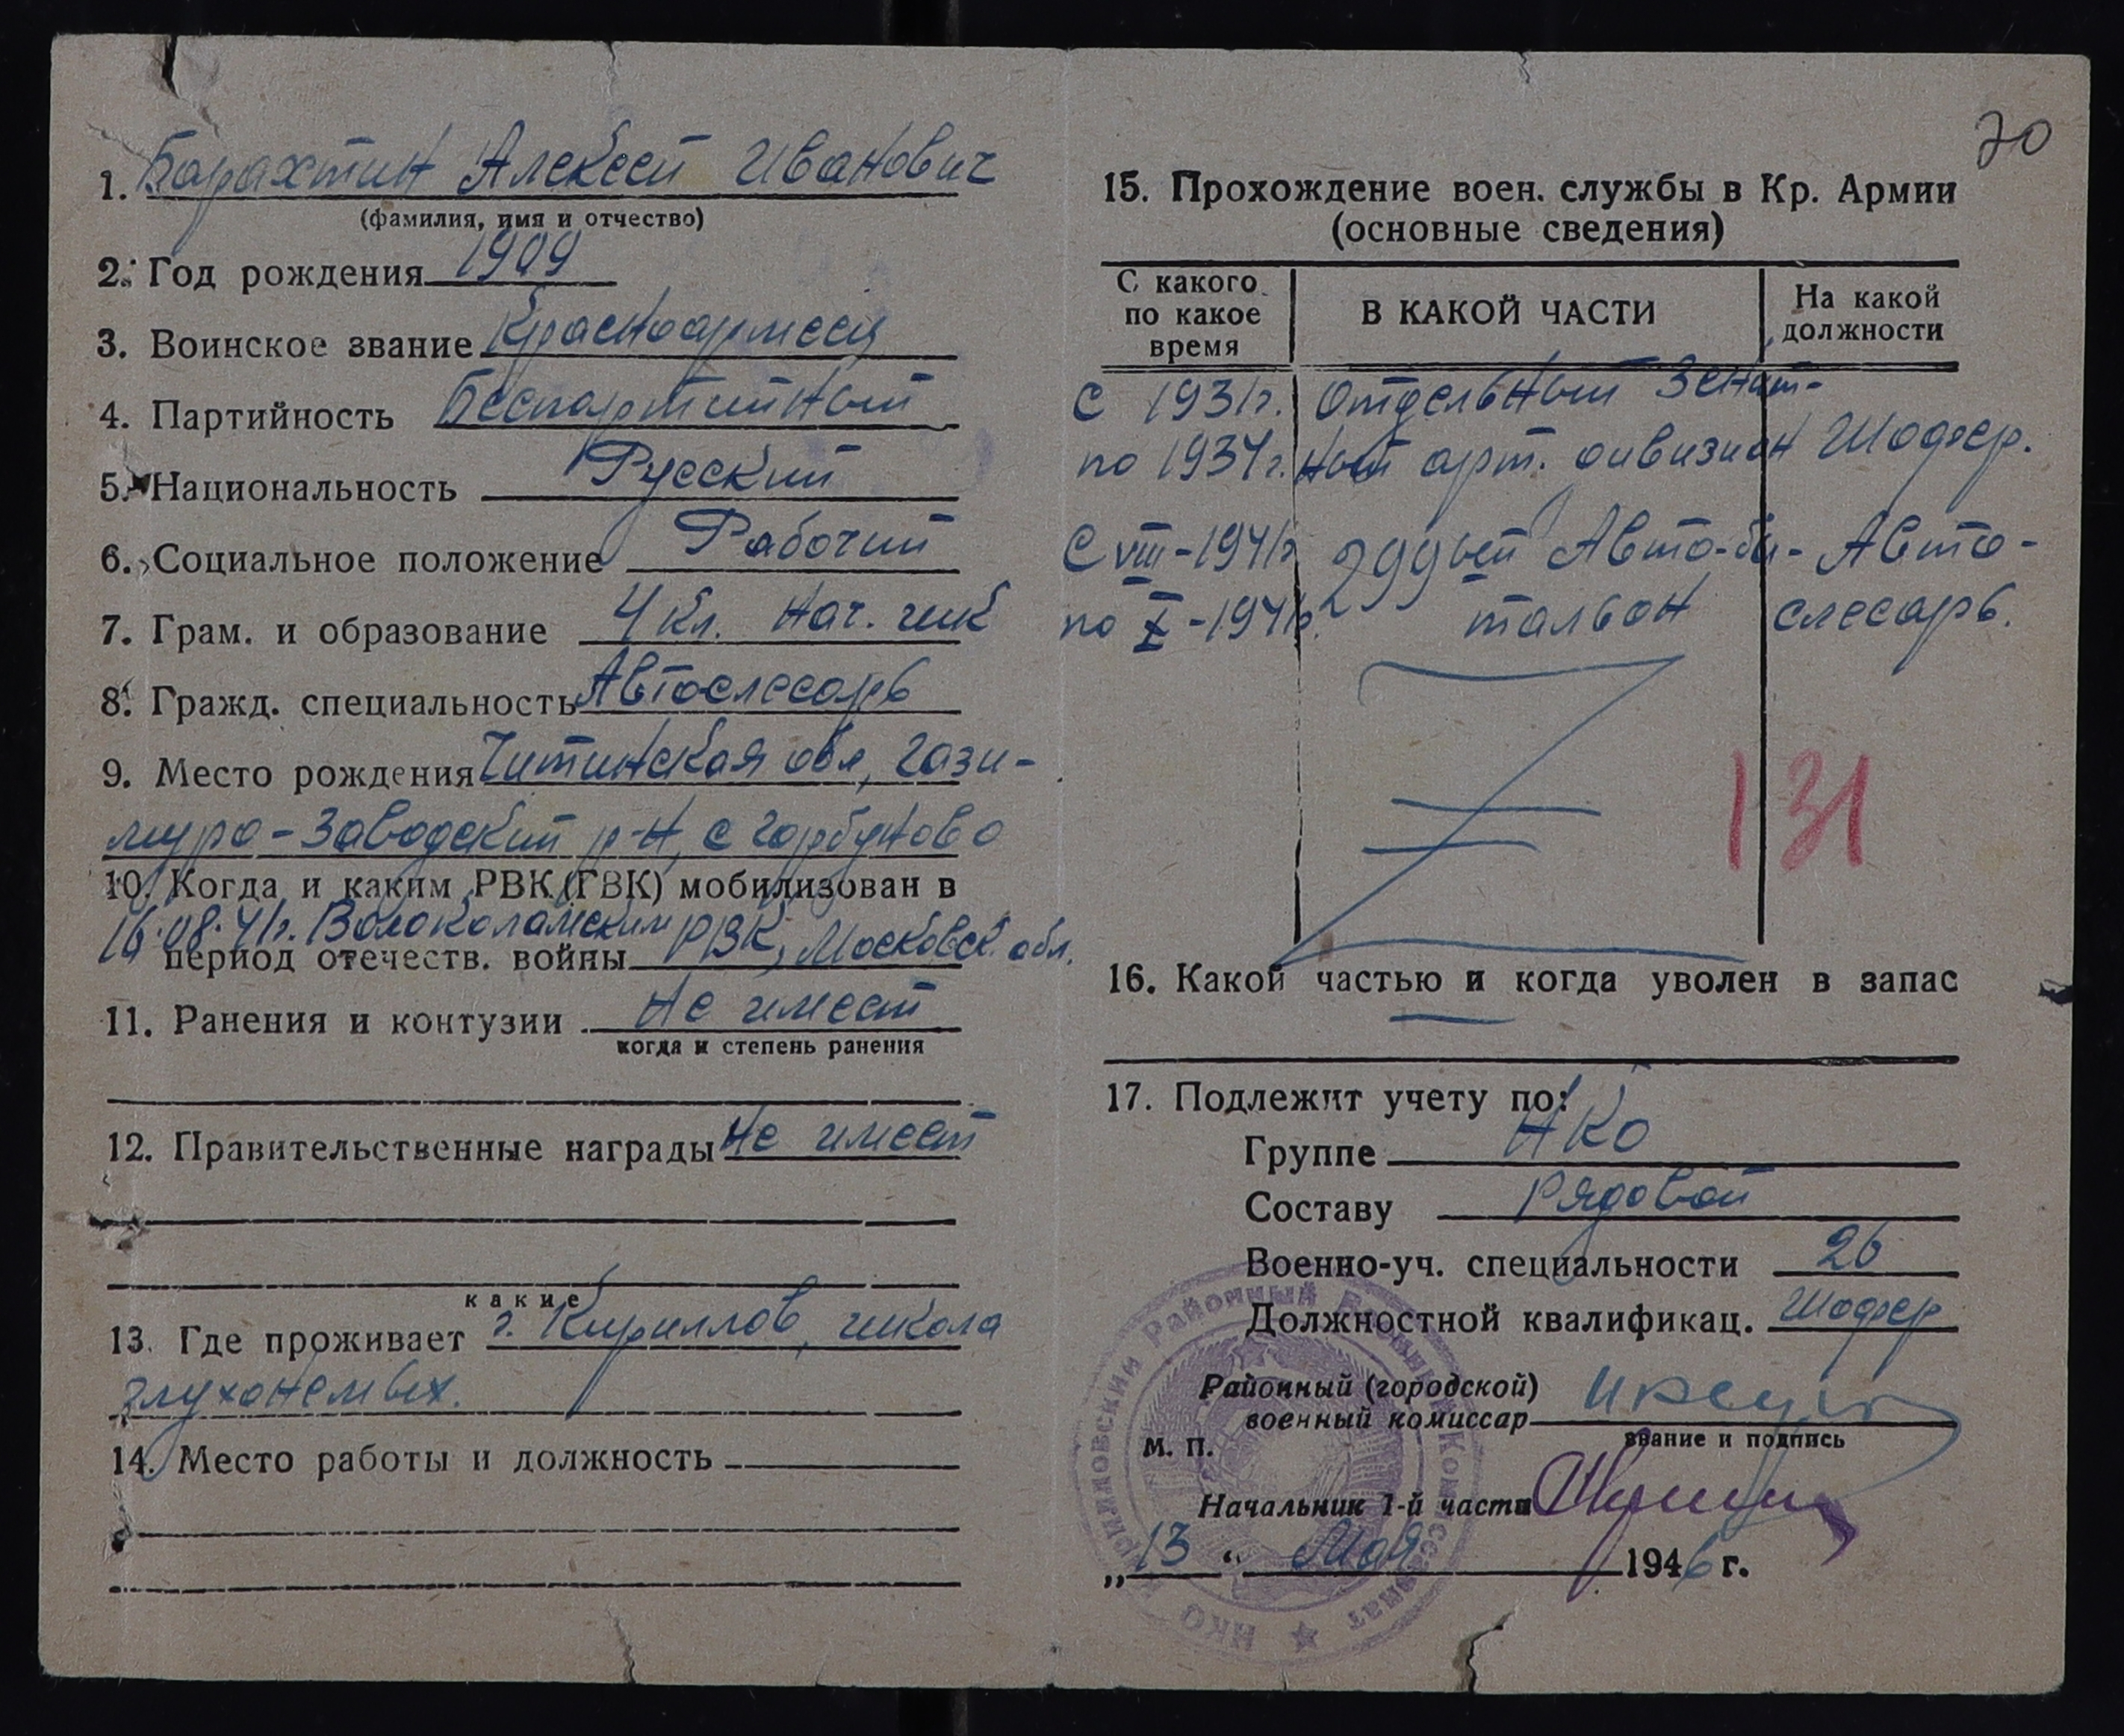 1. Барахтин Алексей Иванович
(фамилия, имя и отчество)
2. Год рождения 1909
3. Воинское звание Красноармеец
4. Партийность Беспартийный
5. Национальность Русский
6. Социальное положение Рабочий
7. Грам. и образование 4 кл. нач. шк
8. Гражд. специальность Автослесарь
9. Место рождения Читинская обл, Гази-
муро-Заводский р-н, с Горбуново
10. Когда и каким РВК (ГВК) мобилизован в
16.08.41г. Волоколамским РВК, Московск. обл.
период отечеств. войны
11. Ранения и контузии не имеет
когда и степень ранения
12. Правительственные награды не имеет
какие
13. Где проживает г. Кириллов, школа
глухонемых.
14. Место работы и должность
70
15. Прохождение воен. службы в Кр. Армии
(основные сведения)
С какого по какое время
В КАКОЙ ЧАСТИ
На какой должности
С 1931г. Отдельный Зенит-
по 1934г. ный арт. дивизион Шофер.
С VIII-1941г 299ый Авто-ба- Авто-
по X-1941г. тальон слесарь.
131
16. Какой частью и когда уволен в запас
17. Подлежит учету по:
Группе НКО
Составу Рядовой
Военно-уч. специальности 26
Должностной квалификац. Шофер
Районный (городской)
военный комиссар
звание и подпись
М. П.
Начальник 1-й части
„13“ Мая 1946 г.
НКО Кирилловский Районный Военный Комиссариат